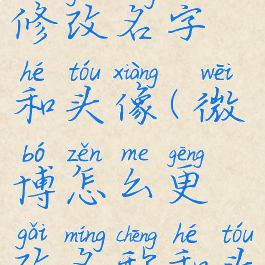 修改名字
hé tóu xiàng wēi
和头像(微
bó zěn me gēng
博怎么更
gǎi míng chēng hé tóu
改名称和头